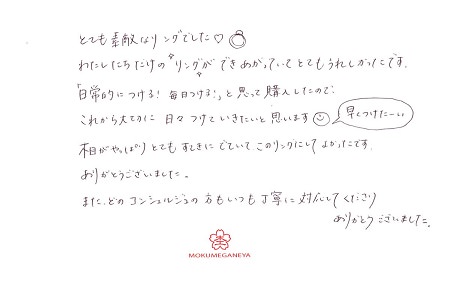 とても素敵なリングでした♡
わたしたちだけの"リング"ができあがっていてとてもうれしかったです。
「日常的につける！毎日つける！」と思って購入したので、
これから大切に日々つけていきたいと思います
早くつけたーい。
相がやっぱりとてもすてきにでていて、このリングにしてよかったです。
ありがとうございました。
また、どのコンシェルジュの方もいつも丁寧に対応してくださり
ありがとうございました。
MOKUMEGANEYA